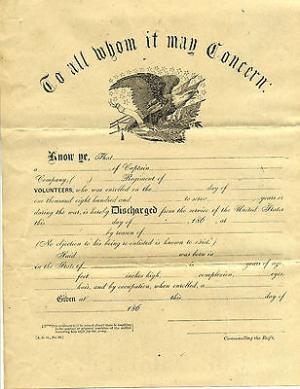 To all whom it may Concern:
Know ye, That
a of Captain
Company, ( ) Regiment of
VOLUNTEERS, who was enrolled on the day of
one thousand eight hundred and to serve years or
during the war, is hereby Discharged from the service of the United States
this day of , 186 , at
by reason of
(No objection to his being re-enlisted is known to exist.)
Said was born in
in the State of , is years of age,
feet inches high, complexion, eyes,
hair, and by occupation, when enrolled, a
Given at this day of
186
Commanding the Reg't.